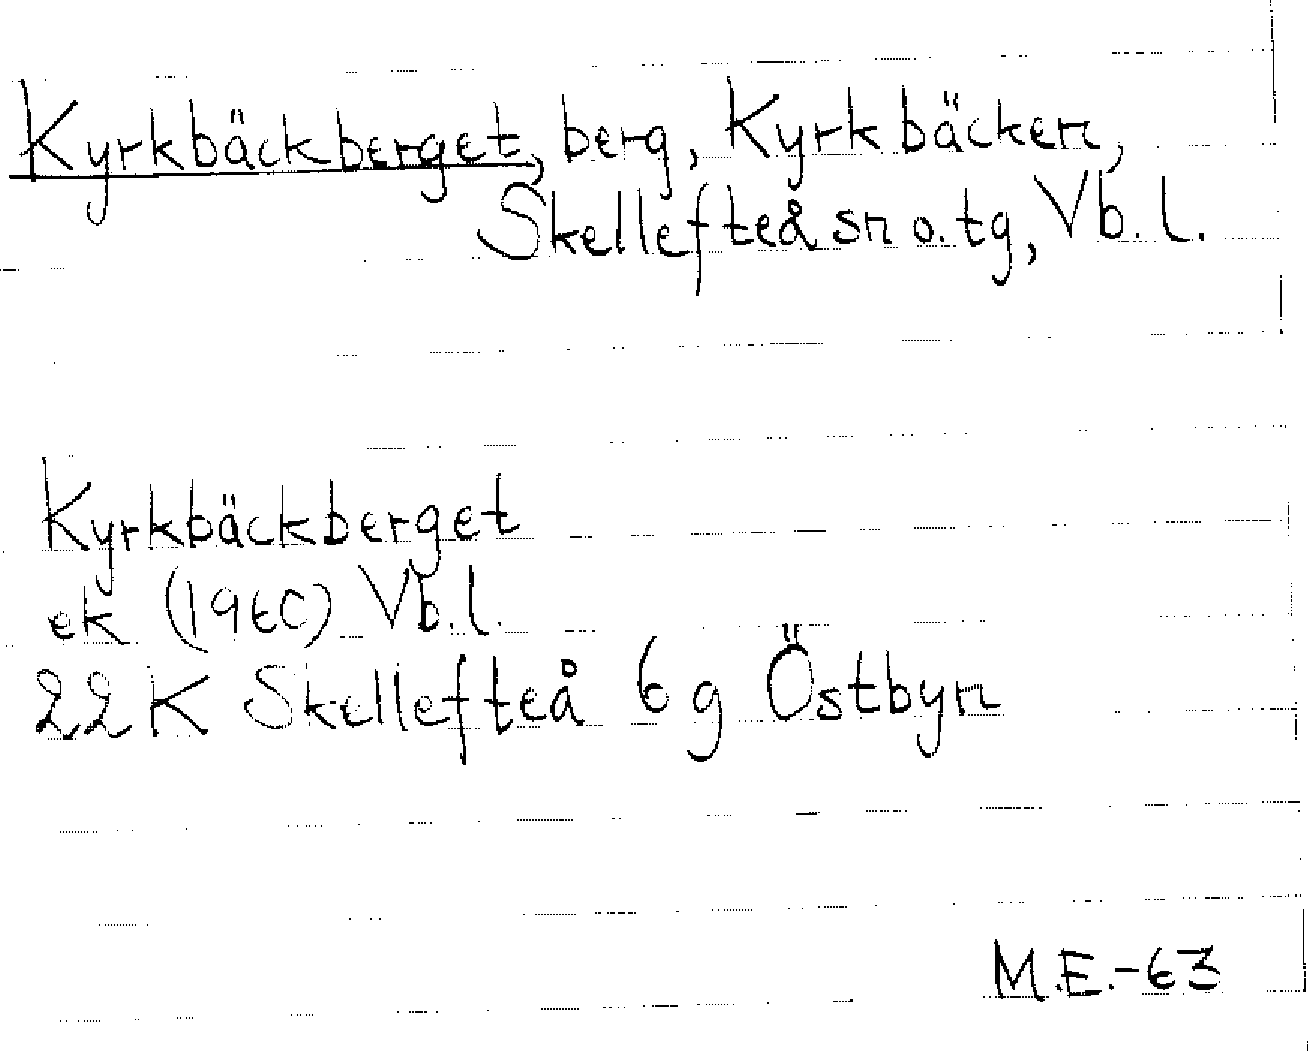 Kyrkbäckberget, berg, Kyrkbäcken,
Skellefteå sn o. tg, Vb. l.
Kyrkbäckberget
ek (1960) Vb. l.
22 K Skellefteå 6 g Östbyn
M.E.-63